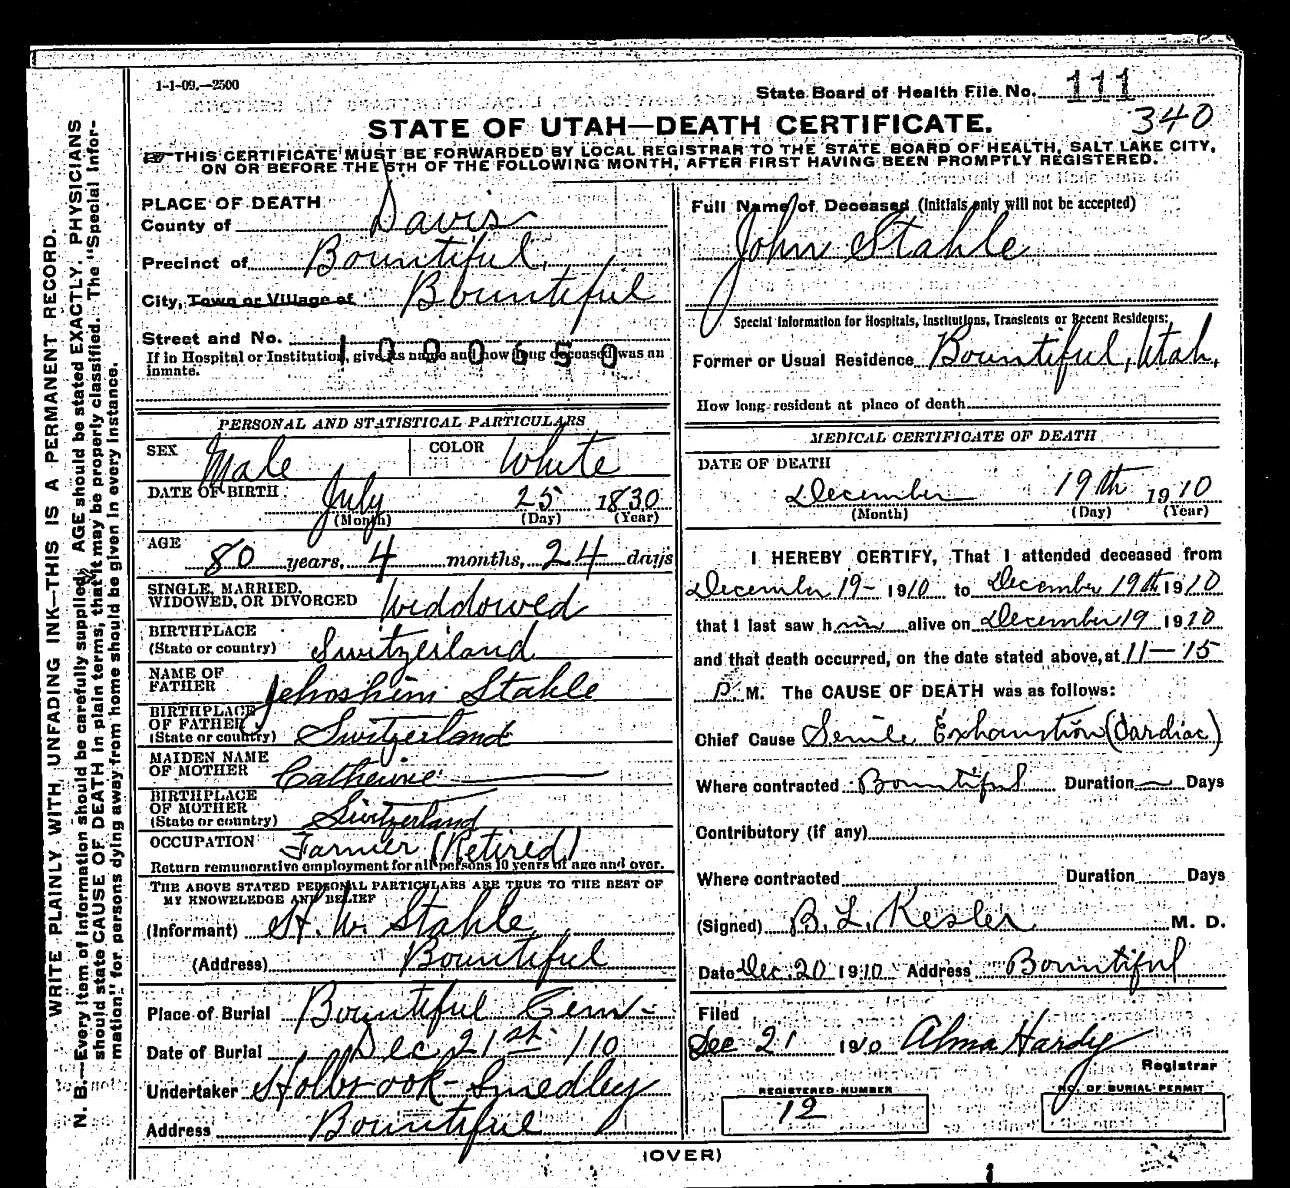 1-1-09.—2500
State Board of Health File No. 111
340
STATE OF UTAH—DEATH CERTIFICATE.
THIS CERTIFICATE MUST BE FORWARDED BY LOCAL REGISTRAR TO THE STATE BOARD OF HEALTH, SALT LAKE CITY,
ON OR BEFORE THE 5TH OF THE FOLLOWING MONTH, AFTER FIRST HAVING BEEN PROMPTLY REGISTERED.
WRITE PLAINLY WITH UNFADING INK—THIS IS A PERMANENT RECORD.
N. B.—Every item of information should be carefully supplied. AGE should be stated EXACTLY. PHYSICIANS
should state CAUSE OF DEATH in plain terms, that it may be properly classified. The "Special Infor-
mation" for persons dying away from home should be given in every instance.
PLACE OF DEATH
County of Davis
Precinct of Bountiful,
City, Town or Village of Bountiful
Street and No.
1000650
If in Hospital or Institution, give its name and how long deceased was an
inmate.
PERSONAL AND STATISTICAL PARTICULARS
SEX Male COLOR White
DATE OF BIRTH July 25 1830
(Month) (Day) (Year)
AGE 80 years, 4 months, 24 days
SINGLE, MARRIED,
WIDOWED, OR DIVORCED Widdowed
BIRTHPLACE
(State or country) Switzerland
NAME OF
FATHER Jehoshim Stahle
BIRTHPLACE
OF FATHER
(State or country) Switzerland
MAIDEN NAME
OF MOTHER Catherine
BIRTHPLACE
OF MOTHER
(State or country) Switzerland
OCCUPATION Farmer (Retired)
Return remunerative employment for all persons 10 years of age and over.
THE ABOVE STATED PERSONAL PARTICULARS ARE TRUE TO THE BEST OF
MY KNOWLEDGE AND BELIEF
(Informant) H. W. Stahle
(Address) Bountiful
Place of Burial Bountiful Cem-
Date of Burial Dec 21st /10
Undertaker Holbrook-Smedley
Address Bountiful
Full Name of Deceased (Initials only will not be accepted)
John Stahle
Special Information for Hospitals, Institutions, Transients or Recent Residents:
Former or Usual Residence Bountiful, Utah.
How long resident at place of death
MEDICAL CERTIFICATE OF DEATH
DATE OF DEATH
December 19th 1910
(Month) (Day) (Year)
I HEREBY CERTIFY, That I attended deceased from
December 19- 1910 to December 19th 1910
that I last saw him alive on December 19 1910
and that death occurred, on the date stated above, at 11-15
P. M. The CAUSE OF DEATH was as follows:
Chief Cause Senile Exhaustion (Cardiac)
Where contracted Bountiful Duration — Days
Contributory (if any)
Where contracted Duration Days
(Signed) B. L. Kesler M. D.
Date Dec 20 1910 Address Bountiful
Filed
Dec 21 1910 Alma Hardy
Registrar
REGISTERED NUMBER
12
NO. OF BURIAL PERMIT
(OVER)